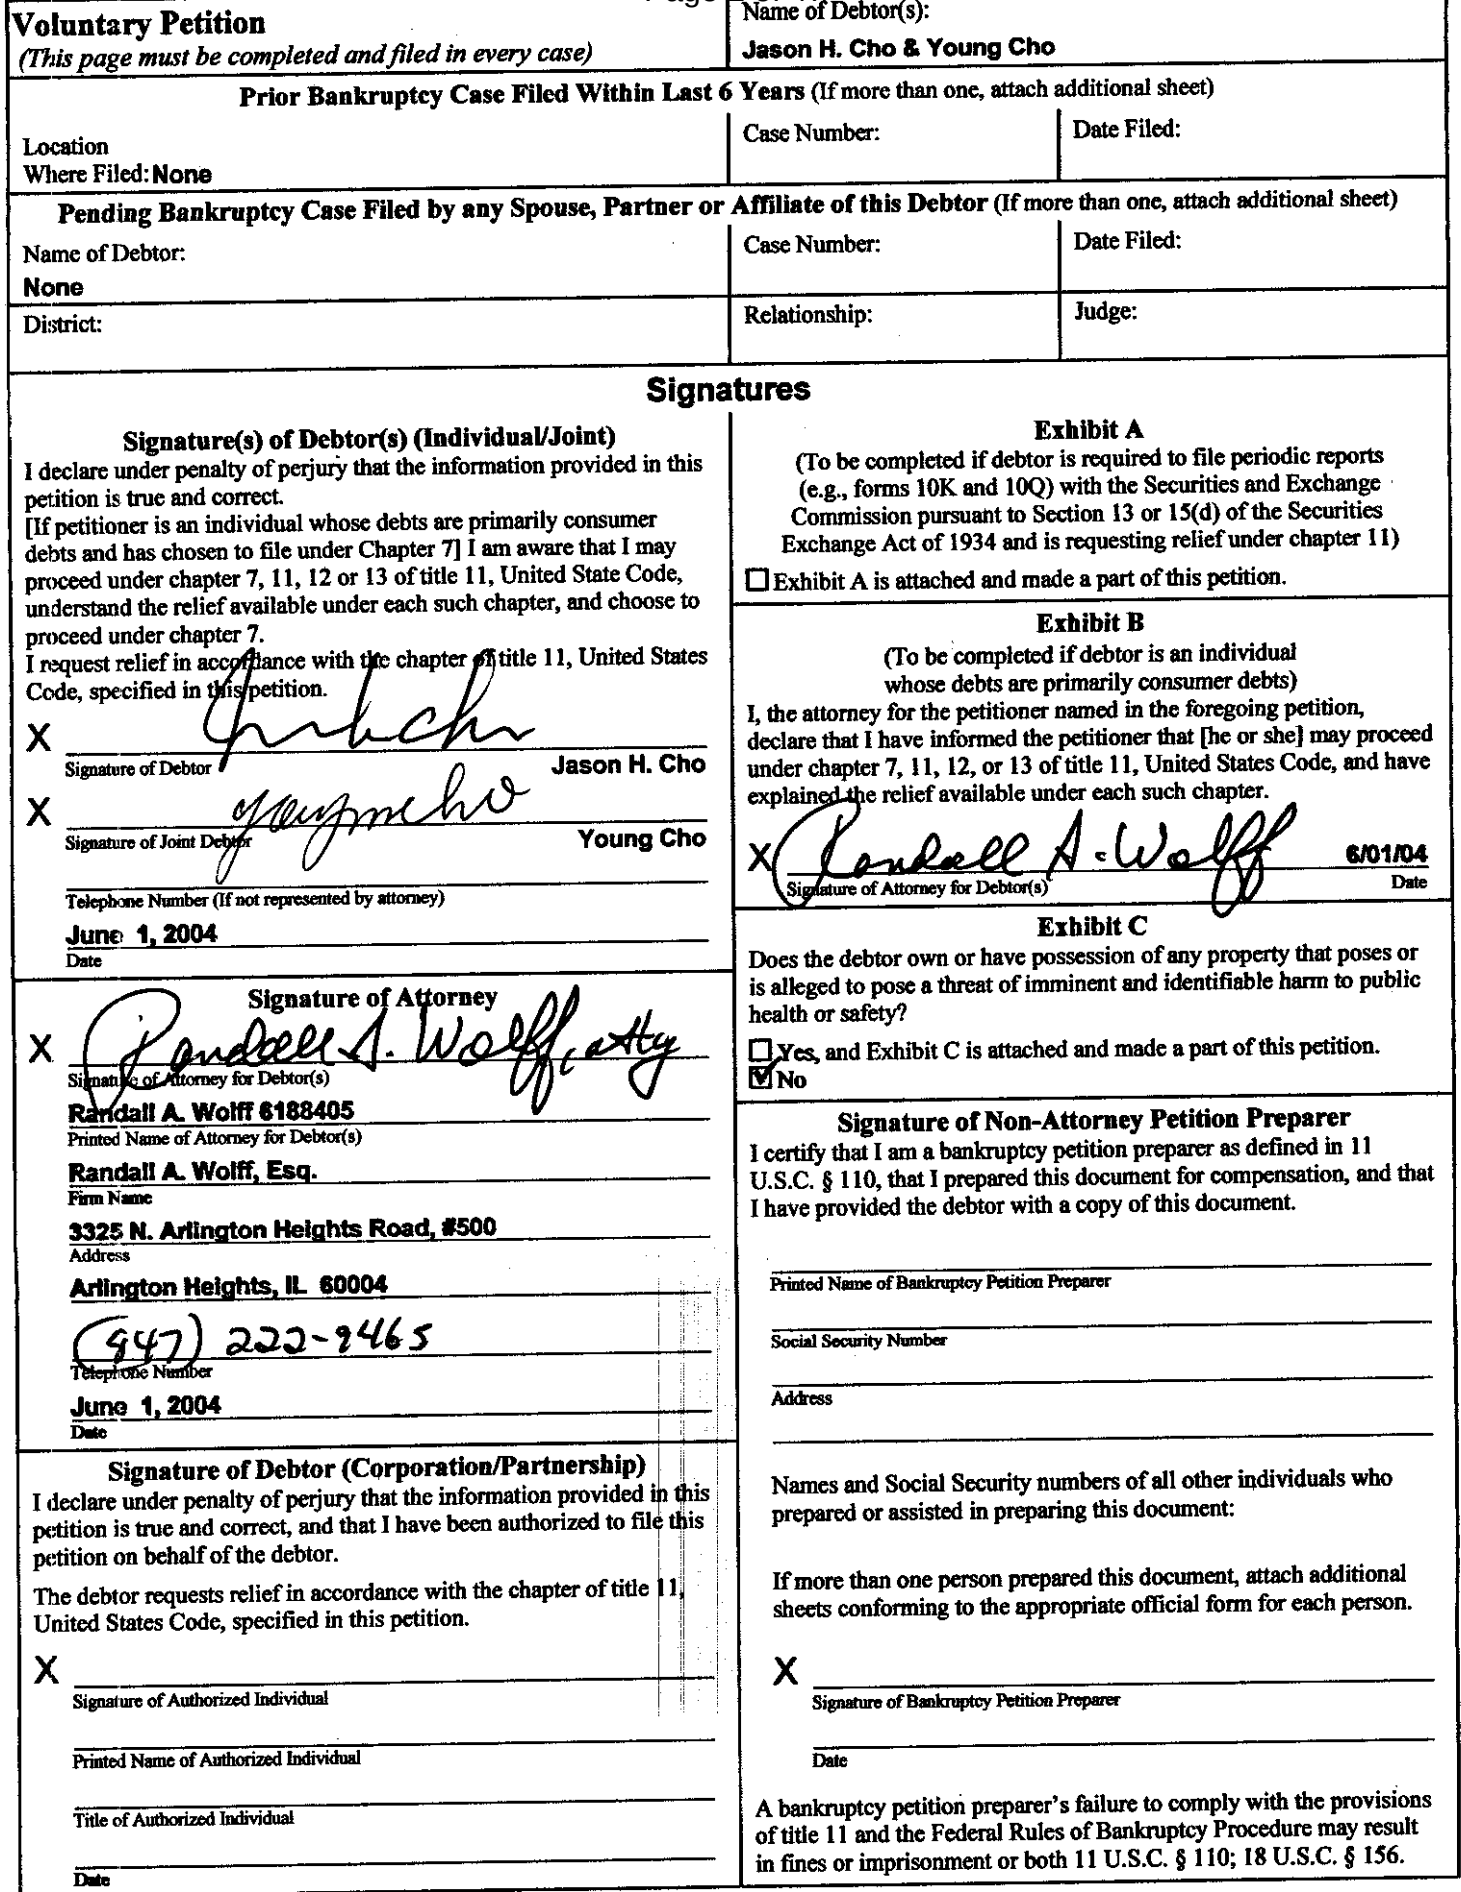 Voluntary Petition
(This page must be completed and filed in every case)
Name of Debtor(s):
Jason H. Cho & Young Cho
Prior Bankruptcy Case Filed Within Last 6 Years (If more than one, attach additional sheet)
Location
Where Filed: None
Case Number:
Date Filed:
Pending Bankruptcy Case Filed by any Spouse, Partner or Affiliate of this Debtor (If more than one, attach additional sheet)
Name of Debtor:
None
Case Number:
Date Filed:
District:
Relationship:
Judge:
Signatures
Signature(s) of Debtor(s) (Individual/Joint)
I declare under penalty of perjury that the information provided in this
petition is true and correct.
[If petitioner is an individual whose debts are primarily consumer
debts and has chosen to file under Chapter 7] I am aware that I may
proceed under chapter 7, 11, 12 or 13 of title 11, United State Code,
understand the relief available under each such chapter, and choose to
proceed under chapter 7.
I request relief in accordance with the chapter of title 11, United States
Code, specified in this petition.
X
Signature of Debtor Jason H. Cho
X
Signature of Joint Debtor Young Cho
Telephone Number (If not represented by attorney)
June 1, 2004
Date
Signature of Attorney
X Randall A. Wolff, atty
Signature of Attorney for Debtor(s)
Randall A. Wolff 6188405
Printed Name of Attorney for Debtor(s)
Randall A. Wolff, Esq.
Firm Name
3325 N. Arlington Heights Road, #500
Address
Arlington Heights, IL 60004
(847) 222-9465
Telephone Number
June 1, 2004
Date
Signature of Debtor (Corporation/Partnership)
I declare under penalty of perjury that the information provided in this
petition is true and correct, and that I have been authorized to file this
petition on behalf of the debtor.
The debtor requests relief in accordance with the chapter of title 11,
United States Code, specified in this petition.
X
Signature of Authorized Individual
Printed Name of Authorized Individual
Title of Authorized Individual
Date
Exhibit A
(To be completed if debtor is required to file periodic reports
(e.g., forms 10K and 10Q) with the Securities and Exchange
Commission pursuant to Section 13 or 15(d) of the Securities
Exchange Act of 1934 and is requesting relief under chapter 11)
☐ Exhibit A is attached and made a part of this petition.
Exhibit B
(To be completed if debtor is an individual
whose debts are primarily consumer debts)
I, the attorney for the petitioner named in the foregoing petition,
declare that I have informed the petitioner that [he or she] may proceed
under chapter 7, 11, 12, or 13 of title 11, United States Code, and have
explained the relief available under each such chapter.
X Randall A. Wolff 6/01/04
Signature of Attorney for Debtor(s) Date
Exhibit C
Does the debtor own or have possession of any property that poses or
is alleged to pose a threat of imminent and identifiable harm to public
health or safety?
☐ Yes, and Exhibit C is attached and made a part of this petition.
☑ No
Signature of Non-Attorney Petition Preparer
I certify that I am a bankruptcy petition preparer as defined in 11
U.S.C. § 110, that I prepared this document for compensation, and that
I have provided the debtor with a copy of this document.
Printed Name of Bankruptcy Petition Preparer
Social Security Number
Address
Names and Social Security numbers of all other individuals who
prepared or assisted in preparing this document:
If more than one person prepared this document, attach additional
sheets conforming to the appropriate official form for each person.
X
Signature of Bankruptcy Petition Preparer
Date
A bankruptcy petition preparer's failure to comply with the provisions
of title 11 and the Federal Rules of Bankruptcy Procedure may result
in fines or imprisonment or both 11 U.S.C. § 110; 18 U.S.C. § 156.